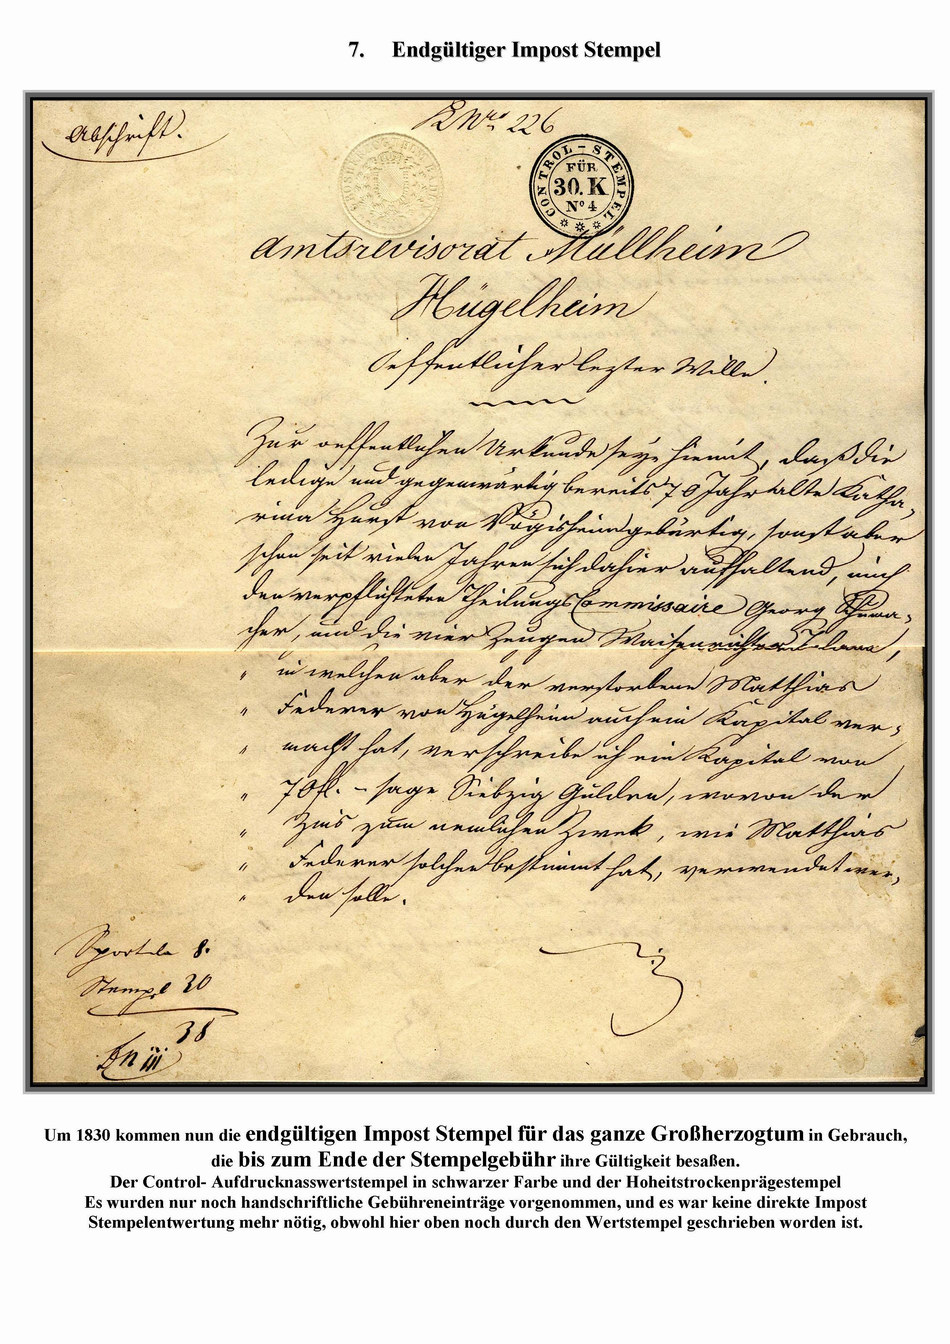 7. Endgültiger Impost Stempel
Abschrift.
Nro. 226
CONTROL-STEMPEL
FÜR
30. K
No 4
Amtsrevisorat Müllheim
Hügelheim
Oeffentlicher lezter Wille.
Zur oeffentlichen Urkunde seye hiemit, daß die
ledige und gegenwärtig bereits 70 Jahr alte Katha-
rina Hurst von Vögisheim gebürtig, sonst aber
schon seit vielen Jahren sich dahier aufhaltend, mich
den verpflichteten Theilungs Commissaire Georg Schuma-
cher, und die vier Zeugen Waisenrichter
" in welchen aber der verstorbene Matthias
" Federer von Hügelheim auch ein Kapital ver-
" macht hat, verschreibe ich ein Kapital von
" 70 fl. – sage Siebzig Gulden, wovon der
" Zins zum nemlichen Zwek, wie Matthias
" Federer solchen bestimmt hat, verwendet wer-
" den solle.
Sporteln 8.
Stempel 30
38
Um 1830 kommen nun die endgültigen Impost Stempel für das ganze Großherzogtum in Gebrauch,
die bis zum Ende der Stempelgebühr ihre Gültigkeit besaßen.
Der Control- Aufdrucknasswertstempel in schwarzer Farbe und der Hoheitstrockenprägestempel
Es wurden nur noch handschriftliche Gebühreneinträge vorgenommen, und es war keine direkte Impost
Stempelentwertung mehr nötig, obwohl hier oben noch durch den Wertstempel geschrieben worden ist.